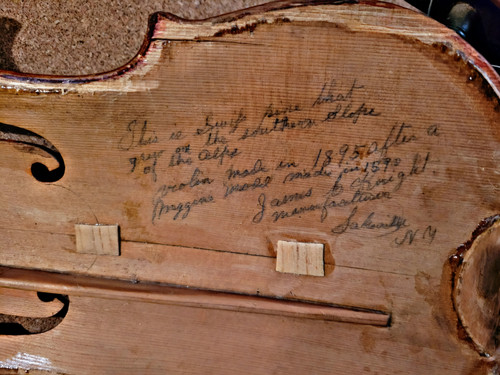 This is Swiss pine that
grew on the southern slope
of the alps
violin made in 1895 after a
Maggine model made in 1590
James E Knight
manufacturer
N Y